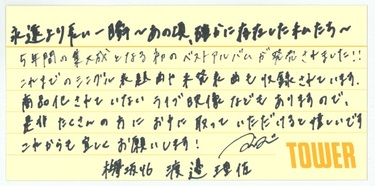 永遠より長い一瞬〜あの頃、確かに存在した私たち〜
5年間の集大成となる初のベストアルバムが発売されました!!
これまでのシングル表題曲や未発表曲も収録されています。
商品化されていないライブ映像などもありますので、
是非たくさんの方にお手に取っていただけると嬉しいです
これからも宜しくお願いします!
欅坂46 渡邉理佐
TOWER